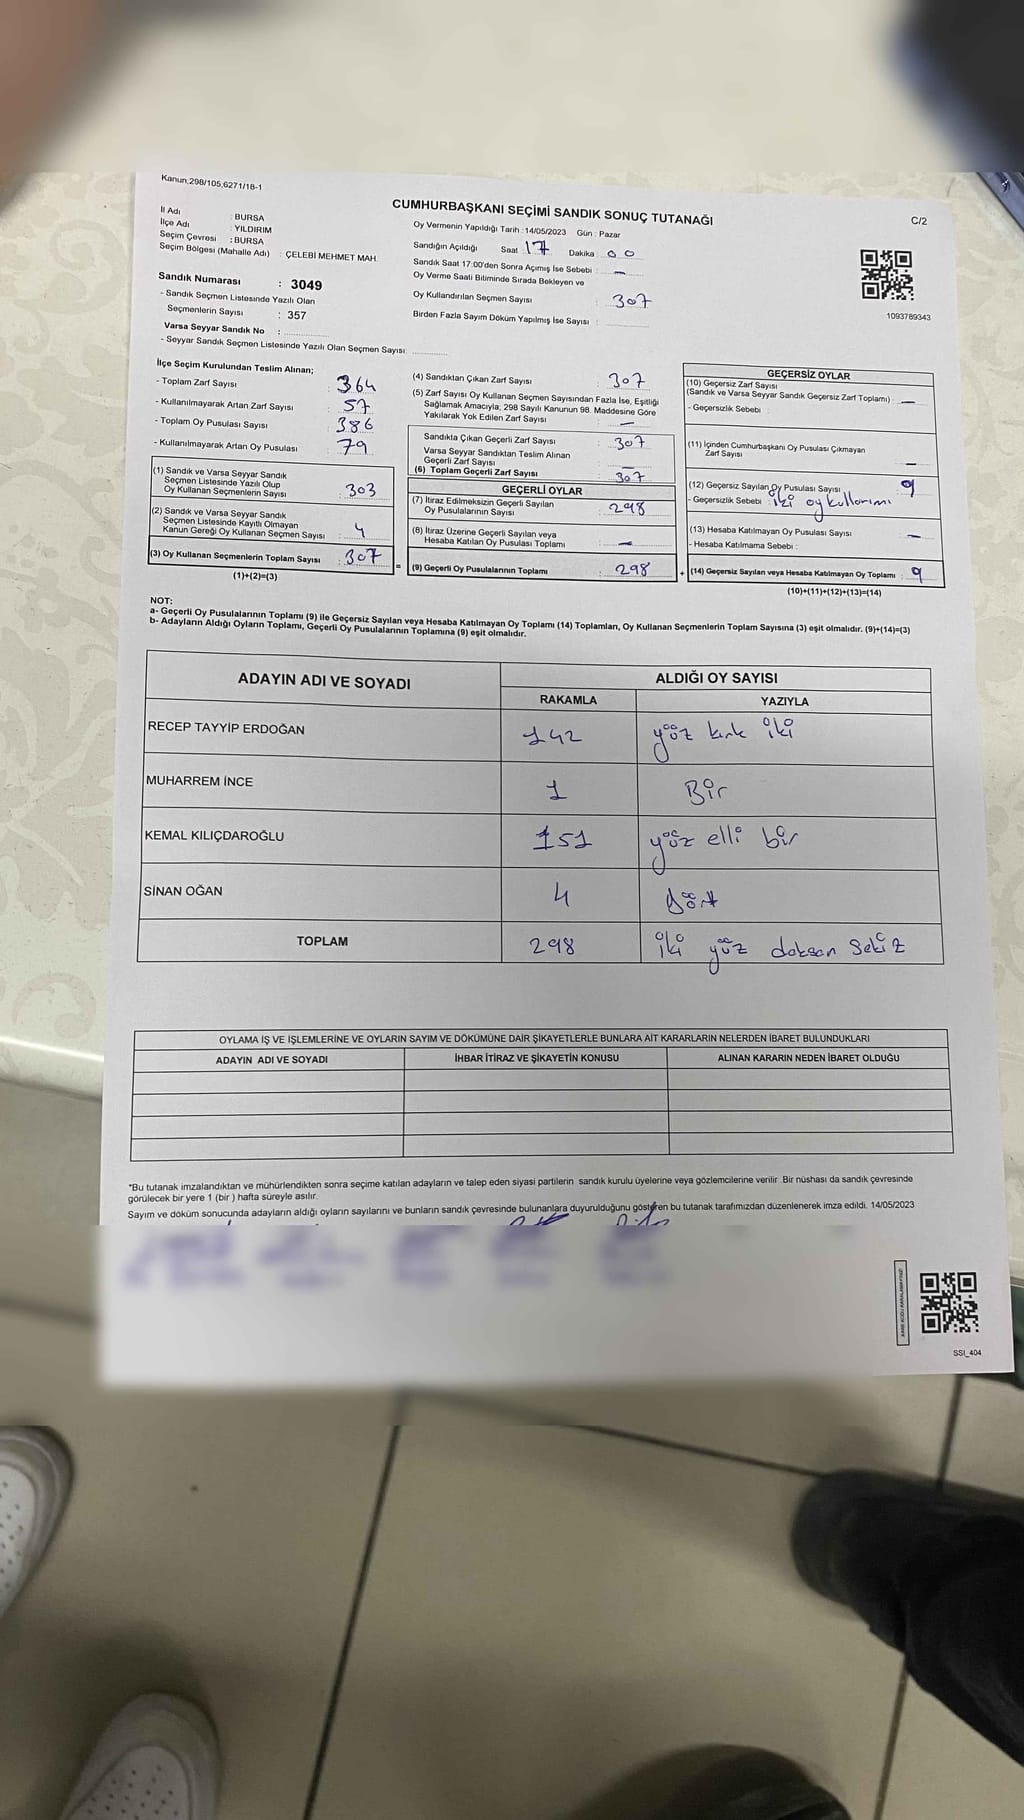 Kanun,298/105,6271/18-1
CUMHURBAŞKANI SEÇİMİ SANDIK SONUÇ TUTANAĞI
C/2
İl Adı : BURSA
İlçe Adı : YILDIRIM
Seçim Çevresi : BURSA
Seçim Bölgesi (Mahalle Adı) : ÇELEBİ MEHMET MAH.
Sandık Numarası : 3049
- Sandık Seçmen Listesinde Yazılı Olan
Seçmenlerin Sayısı : 357
Varsa Seyyar Sandık No :
- Seyyar Sandık Seçmen Listesinde Yazılı Olan Seçmen Sayısı:
Oy Vermenin Yapıldığı Tarih : 14/05/2023 Gün : Pazar
Sandığın Açıldığı Saat 17 Dakika 00
Sandık Saat 17:00'den Sonra Açımış İse Sebebi : —
Oy Verme Saati Bitiminde Sırada Bekleyen ve
Oy Kullandırılan Seçmen Sayısı : 307
Birden Fazla Sayım Döküm Yapılmış İse Sayısı :
1093789343
İlçe Seçim Kurulundan Teslim Alınan;
- Toplam Zarf Sayısı : 364
- Kullanılmayarak Artan Zarf Sayısı : 57
- Toplam Oy Pusulası Sayısı : 386
- Kullanılmayarak Artan Oy Pusulası : 79
(1) Sandık ve Varsa Seyyar Sandık
Seçmen Listesinde Yazılı Olup
Oy Kullanan Seçmenlerin Sayısı : 303
(2) Sandık ve Varsa Seyyar Sandık
Seçmen Listesinde Kayıtlı Olmayan
Kanun Gereği Oy Kullanan Seçmen Sayısı : 4
(3) Oy Kullanan Seçmenlerin Toplam Sayısı : 307
(1)+(2)=(3)
=
(4) Sandıktan Çıkan Zarf Sayısı : 307
(5) Zarf Sayısı Oy Kullanan Seçmen Sayısından Fazla İse, Eşitliği
Sağlamak Amacıyla, 298 Sayılı Kanunun 98. Maddesine Göre
Yakılarak Yok Edilen Zarf Sayısı : —
Sandıkta Çıkan Geçerli Zarf Sayısı : 307
Varsa Seyyar Sandıktan Teslim Alınan
Geçerli Zarf Sayısı : —
(6) Toplam Geçerli Zarf Sayısı : 307
GEÇERLİ OYLAR
(7) İtiraz Edilmeksizin Geçerli Sayılan
Oy Pusulalarının Sayısı : 298
(8) İtiraz Üzerine Geçerli Sayılan veya
Hesaba Katılan Oy Pusulası Toplamı : —
(9) Geçerli Oy Pusulalarının Toplamı : 298
+
GEÇERSİZ OYLAR
(10) Geçersiz Zarf Sayısı
(Sandık ve Varsa Seyyar Sandık Geçersiz Zarf Toplamı) : —
- Geçersizlik Sebebi :
(11) İçinden Cumhurbaşkanı Oy Pusulası Çıkmayan
Zarf Sayısı : —
(12) Geçersiz Sayılan Oy Pusulası Sayısı : 9
- Geçersizlik Sebebi : iki oy kullanımı
(13) Hesaba Katılmayan Oy Pusulası Sayısı : —
- Hesaba Katılmama Sebebi :
(14) Geçersiz Sayılan veya Hesaba Katılmayan Oy Toplamı : 9
(10)+(11)+(12)+(13)=(14)
NOT:
a- Geçerli Oy Pusulalarının Toplamı (9) ile Geçersiz Sayılan veya Hesaba Katılmayan Oy Toplamı (14) Toplamları, Oy Kullanan Seçmenlerin Toplam Sayısına (3) eşit olmalıdır. (9)+(14)=(3)
b- Adayların Aldığı Oyların Toplamı, Geçerli Oy Pusulalarının Toplamına (9) eşit olmalıdır.
ADAYIN ADI VE SOYADI ALDIĞI OY SAYISI
RAKAMLA YAZIYLA
RECEP TAYYİP ERDOĞAN 142 yüz kırk iki
MUHARREM İNCE 1 Bir
KEMAL KILIÇDAROĞLU 151 yüz elli bir
SİNAN OĞAN 4 dört
TOPLAM 298 iki yüz doksan sekiz
OYLAMA İŞ VE İŞLEMLERİNE VE OYLARIN SAYIM VE DÖKÜMÜNE DAİR ŞİKAYETLERLE BUNLARA AİT KARARLARIN NELERDEN İBARET BULUNDUKLARI
ADAYIN ADI VE SOYADI İHBAR İTİRAZ VE ŞİKAYETİN KONUSU ALINAN KARARIN NEDEN İBARET OLDUĞU
*Bu tutanak imzalandıktan ve mühürlendikten sonra seçime katılan adayların ve talep eden siyasi partilerin sandık kurulu üyelerine veya gözlemcilerine verilir. Bir nüshası da sandık çevresinde
görülecek bir yere 1 (bir ) hafta süreyle asılır.
Sayım ve döküm sonucunda adayların aldığı oyların sayılarını ve bunların sandık çevresinde bulunanlara duyurulduğunu gösteren bu tutanak tarafımızdan düzenlenerek imza edildi. 14/05/2023
SSI_404